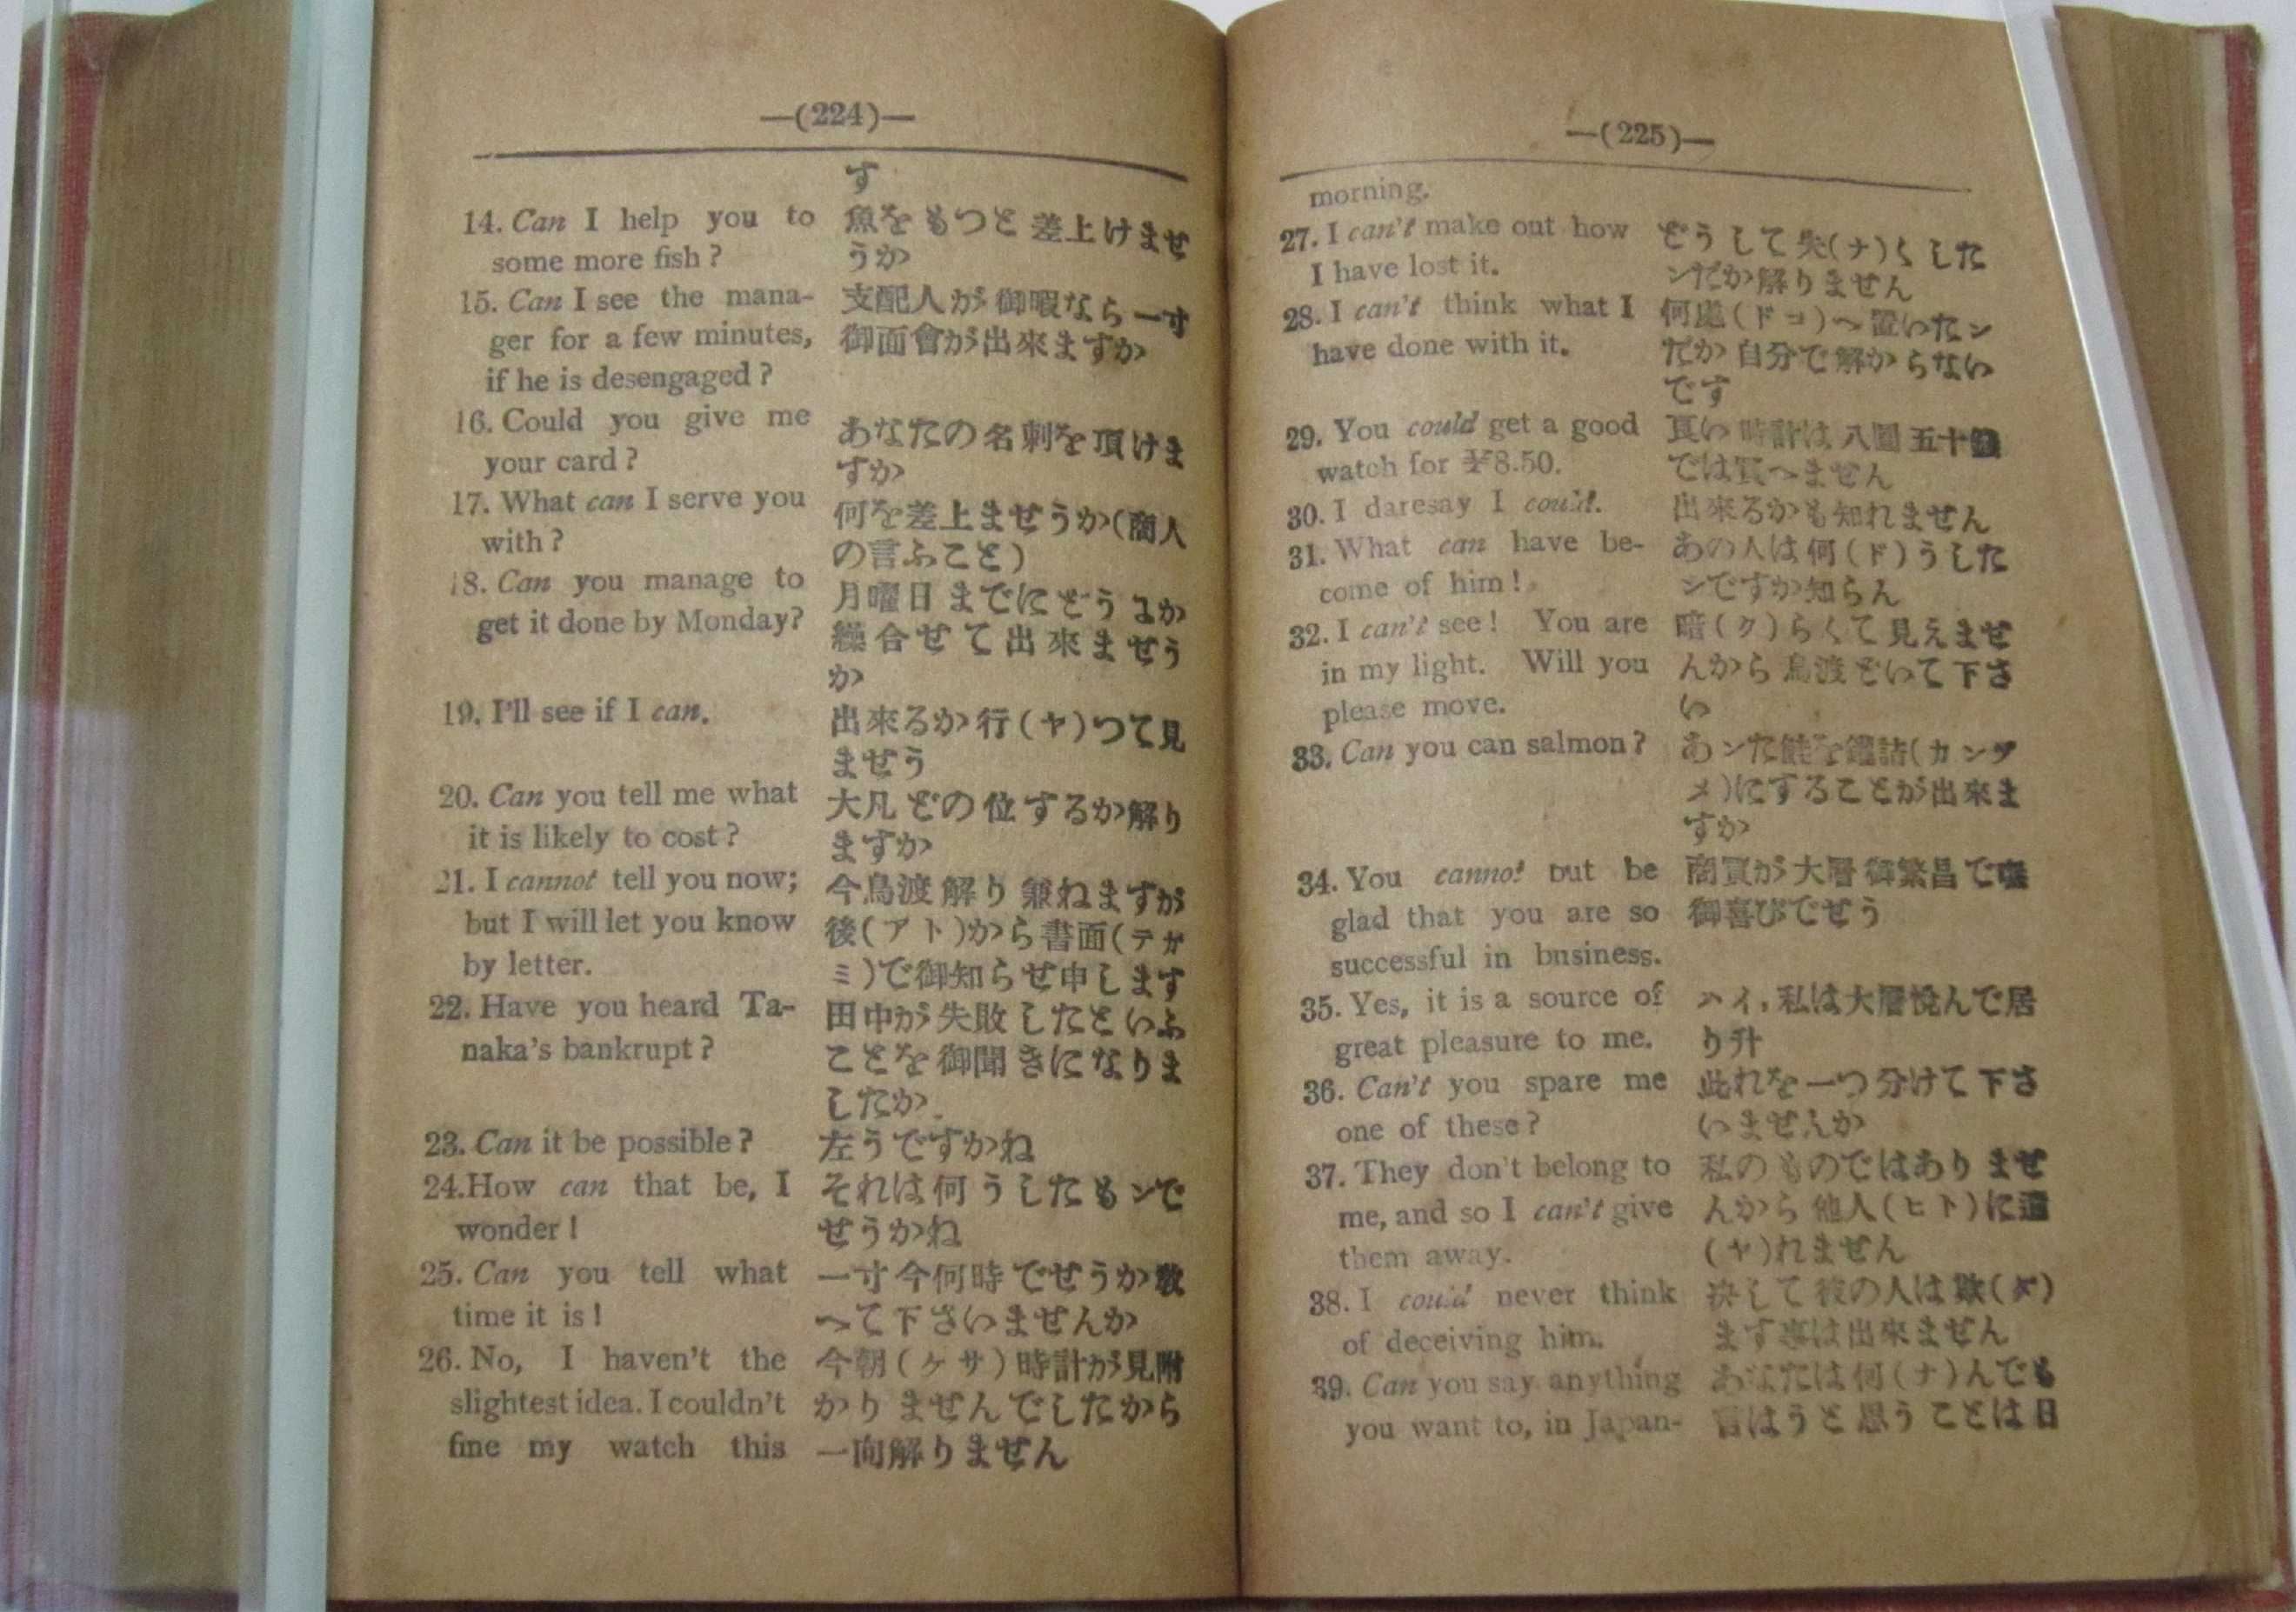 —(224)—
す
14. Can I help you to
some more fish ?
魚をもつと差上けませ
うか
15. Can I see the mana-
ger for a few minutes,
if he is desengaged ?
支配人が御暇なら一寸
御面會が出來ますか
16. Could you give me
your card ?
あなたの名刺を頂けま
すか
17. What can I serve you
with ?
何を差上ませうか(商人
の言ふこと)
18. Can you manage to
get it done by Monday?
月曜日までにどうよか
繰合せて出來ませう
か
19. I'll see if I can.
出來るか行(ヤ)つて見
ませう
20. Can you tell me what
it is likely to cost ?
大凡どの位するか解り
ますか
21. I cannot tell you now;
but I will let you know
by letter.
今鳥渡解り兼ねますが
後(アト)から書面(テガ
ミ)で御知らせ申します
22. Have you heard Ta-
naka's bankrupt ?
田中が失敗したといふ
ことを御聞きになりま
したか
23. Can it be possible ?
左うですかね
24. How can that be, I
wonder !
それは何うしたもンで
せうかね
25. Can you tell what
time it is !
一寸今何時でせうか敎
へて下さいませんか
26. No, I haven't the
slightest idea. I couldn't
fine my watch this
今朝(ケサ)時計が見附
かりませんでしたから
一向解りません
—(225)—
morning.
27. I can't make out how
I have lost it.
どうして失(ナ)くした
ンだか解りません
28. I can't think what I
have done with it.
何處(ドコ)へ置いたン
だか自分で解からない
です
29. You could get a good
watch for ¥8.50.
良い時計は八圓五十錢
では買へません
30. I daresay I could.
出來るかも知れません
31. What can have be-
come of him !
あの人は何(ド)うした
ンですか知らん
32. I can't see ! You are
in my light. Will you
please move.
暗(ク)らくて見えませ
んから鳥渡どいて下さ
い
33. Can you can salmon ?
あンた鮭を鑵詰(カンヅ
メ)にすることが出來ま
すか
34. You cannot but be
glad that you are so
successful in bnsiness.
商買が大層御繁昌で
御喜びでせう
35. Yes, it is a source of
great pleasure to me.
ハイ,私は大層悅んで居
り升
36. Can't you spare me
one of these ?
此れを一つ分けて下さ
いませんか
37. They don't belong to
me, and so I can't give
them away.
私のものではありませ
んから他人(ヒト)に遣
(ヤ)れません
38. I could never think
of deceiving him.
決して彼の人は欺(ダ)
ます事は出來ません
39. Can you say anything
you want to, in Japan-
あなたは何(ナ)んでも
言はうと思うことは日